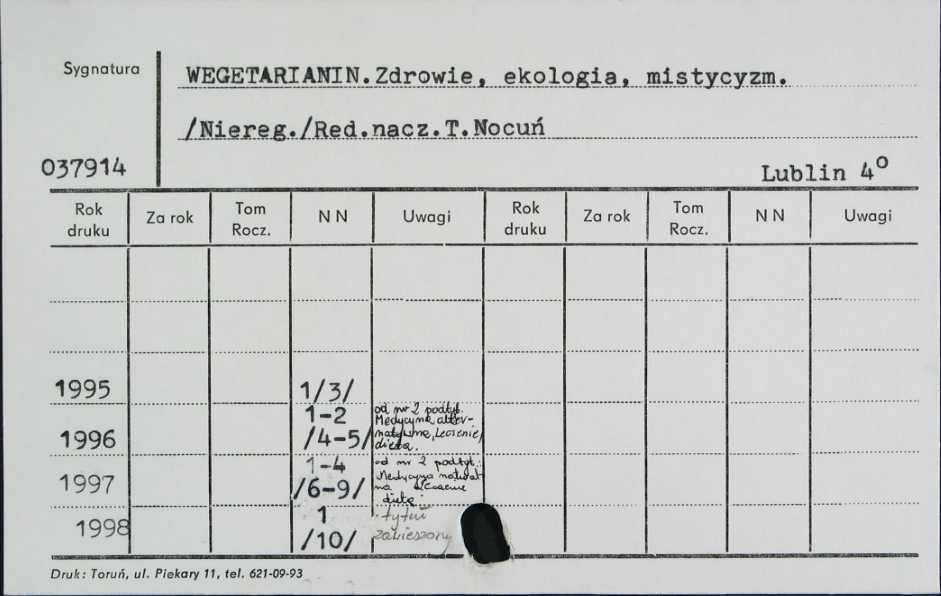 Sygnatura
WEGETARIANIN.Zdrowie, ekologia, mistycyzm.
/Niereg./Red.nacz.T.Nocuń
037914
Lublin 4º
Rok druku Za rok Tom Rocz. N N Uwagi Rok druku Za rok Tom Rocz. N N Uwagi
1995 1/3/
1996 1-2 /4-5/ od nr 2 podtyt. Medycyna alternatywna, Leczenie dietą.
1997 1-4 /6-9/ od nr 2 podtyt.: Medycyna naturalna Leczenie dietą
1998 1 /10/ tytuł zawieszony
Druk: Toruń, ul. Piekary 11, tel. 621-09-93